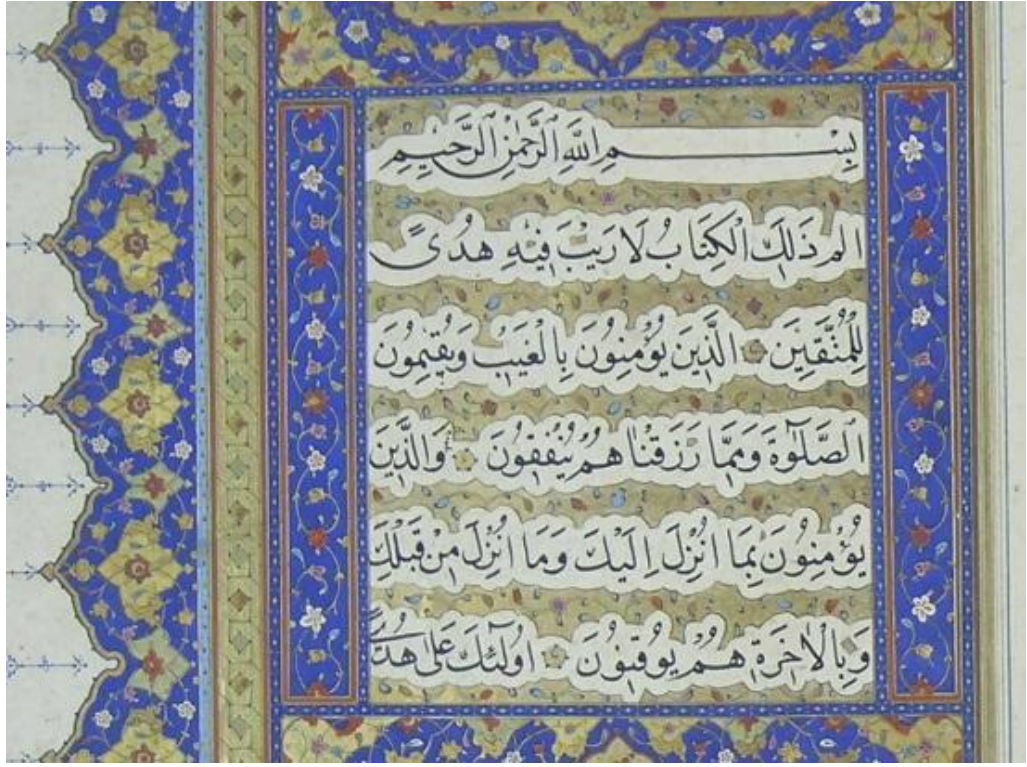 بِسْمِ اللّٰهِ الرَّحْمٰنِ الرَّحِيمِ
الم ذَلِكَ الْكِتَابُ لَا رَيْبَ فِيهِ هُدًى
لِلْمُتَّقِينَ الَّذِينَ يُؤْمِنُونَ بِالْغَيْبِ وَيُقِيمُونَ
الصَّلٰوةَ وَمِمَّا رَزَقْنَاهُمْ يُنْفِقُونَ وَالَّذِينَ
يُؤْمِنُونَ بِمَا اُنْزِلَ اِلَيْكَ وَمَا اُنْزِلَ مِنْ قَبْلِكَ
وَبِالْاٰخِرَةِ هُمْ يُوقِنُونَ اُولٰئِكَ عَلٰى هُدًى